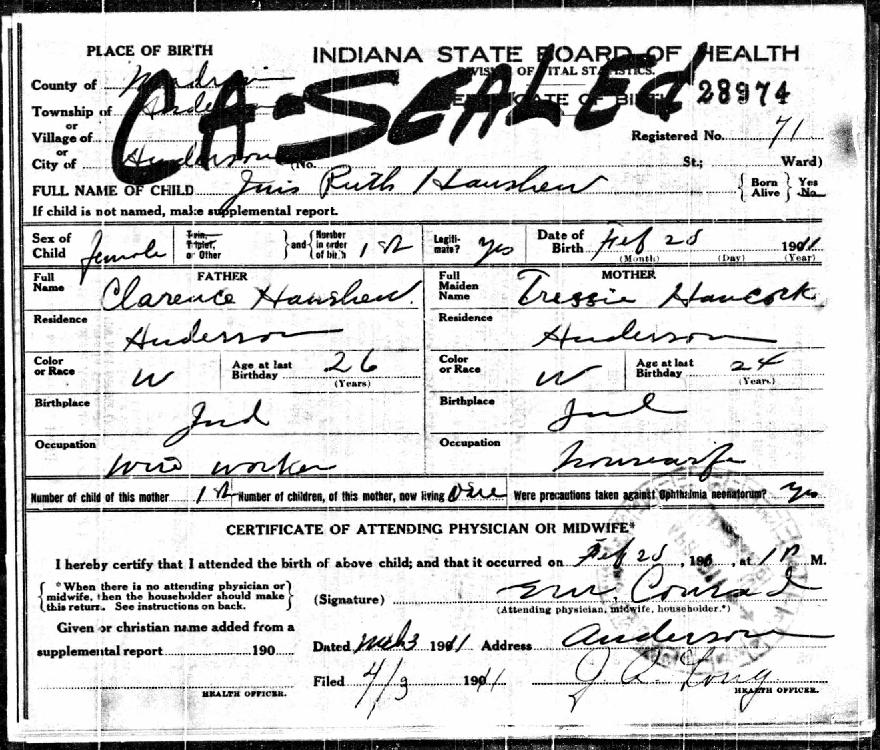 PLACE OF BIRTH
INDIANA STATE BOARD OF HEALTH
DIVISION OF VITAL STATISTICS.
CERTIFICATE OF BIRTH
28974
CA-SEALED
County of Madison
Township of Anderson
or
Village of
or
City of Anderson (No.
Registered No. 71
St.; Ward)
FULL NAME OF CHILD Ruth Hanshew
{ Born Alive } { Yes No
If child is not named, make supplemental report.
Sex of Child female
Twin, Triplet, or Other } and { Number in order of birth 1st
Legiti-mate? Yes
Date of Birth Feb 1911
(Month) (Day) (Year)
FATHER
Full Name Clarence Hanshew.
MOTHER
Full Maiden Name Tressie Hancock
Residence Anderson
Residence Anderson
Color or Race W
Age at last Birthday 26
(Years)
Color or Race W
Age at last Birthday 24
(Years)
Birthplace Ind
Birthplace Ind
Occupation wire worker
Occupation housewife
Number of child of this mother 1st Number of children, of this mother, now living One Were precautions taken against Ophthalmia neonatorum? Yes
CERTIFICATE OF ATTENDING PHYSICIAN OR MIDWIFE*
I hereby certify that I attended the birth of above child; and that it occurred on Feb , 190 , at 1 P M.
{ * When there is no attending physician or midwife, then the householder should make this return. See instructions on back. }
(Signature) Conrad
(Attending physician, midwife, householder.*)
Given or christian name added from a
supplemental report 190
Dated Mch 3 1911 Address Anderson
Filed 4/3 1911
HEALTH OFFICER.
HEALTH OFFICER.